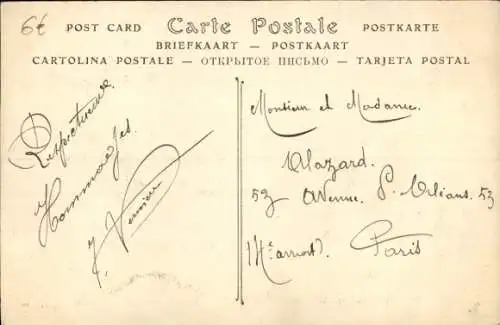 6€
POST CARD Carte Postale POSTKARTE
BRIEFKAART — POSTKAART
CARTOLINA POSTALE — ОТКРЫТОЕ ПИСЬМО — TARJETA POSTAL
Respectueux
Hommages.
Monsieur et Madame.
Alazard.
53 Avenue. d'Orléans. 53
14e arrond.
Paris